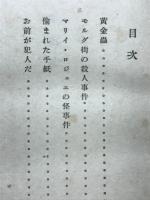 目次
黄金蟲
モルグ街の殺人事件
マリイ・ロジェエの怪事件
偸まれた手紙
お前が犯人だ